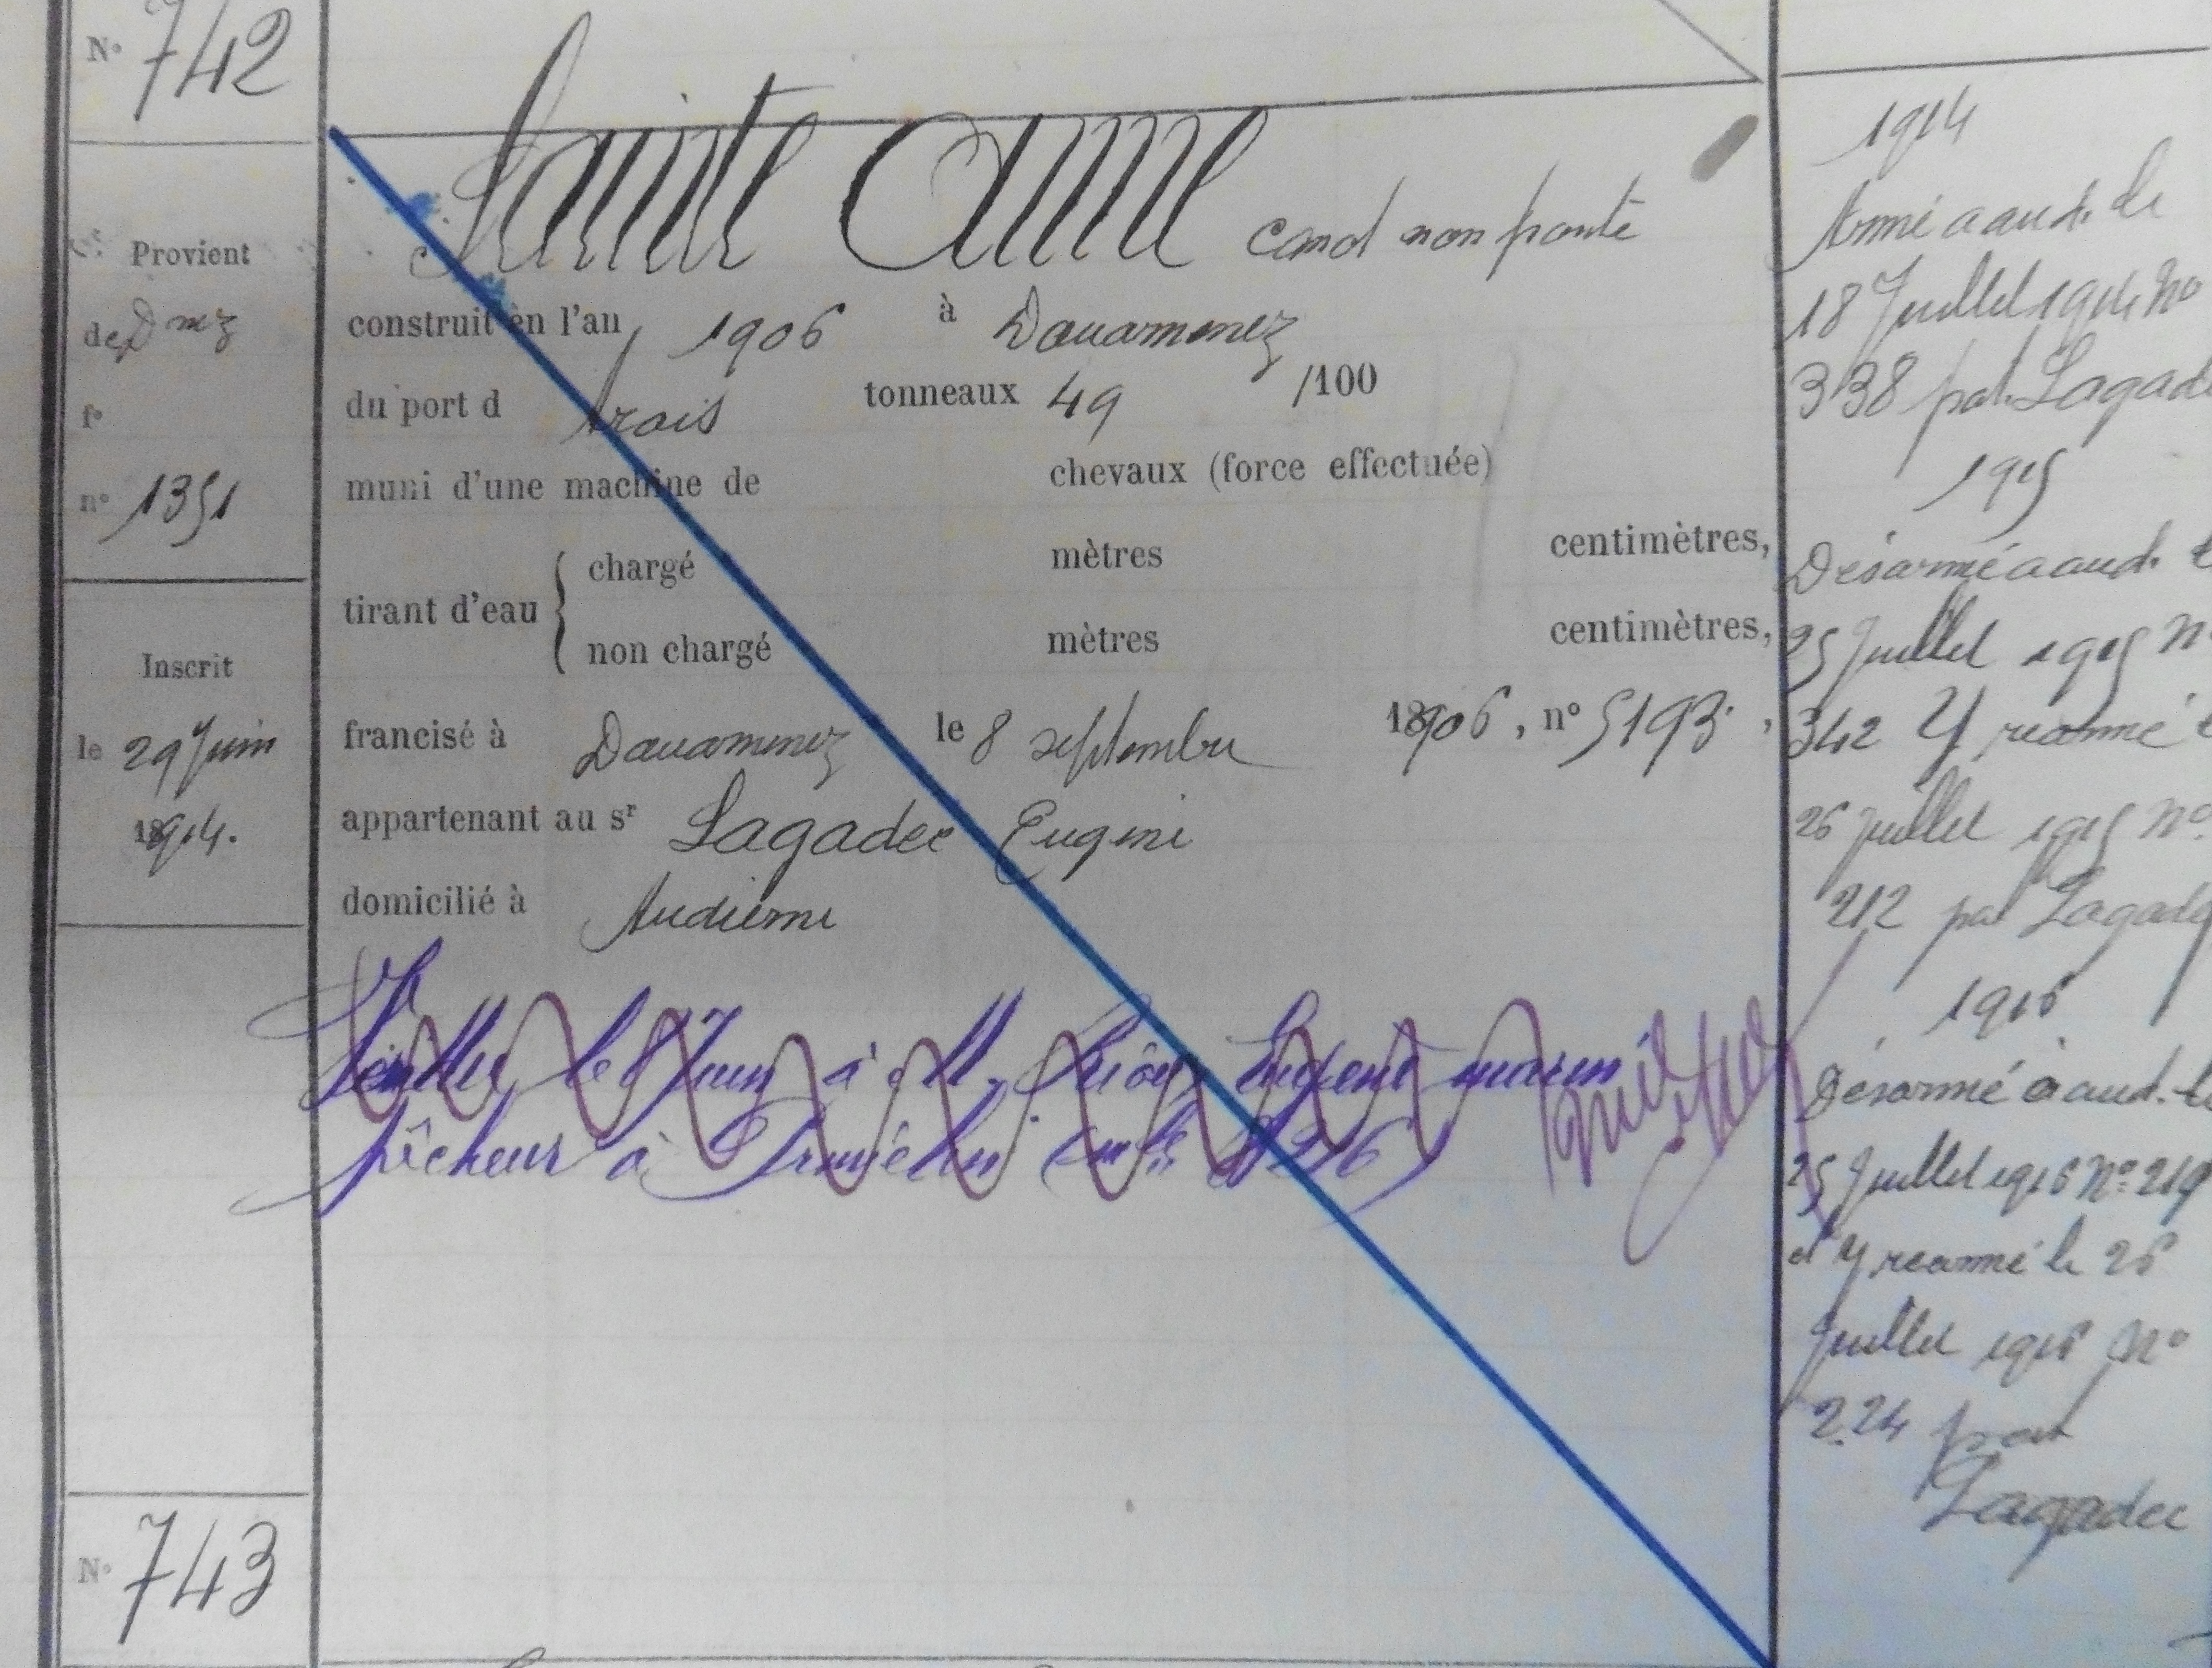 N° 742
Sainte Anne canot non ponté
Provient
de Dnez
f°
n° 1351
construit en l'an 1906 à Douarnenez
du port d trois tonneaux 49 /100
muni d'une machine de chevaux (force effectuée)
tirant d'eau { chargé mètres centimètres,
non chargé mètres centimètres,
Inscrit
le 29 Juin
1914.
francisé à Douarnenez le 8 septembre 1906, n° 5193,
appartenant au sr Lagadec Eugène
domicilié à Audierne
Vendu le 8 Juin à M. Eugène marin
pêcheur à
N° 743
1914
Armé a aud. le
18 Juillet 1914 No
338 pat. Lagad
1915
Désarmé a aud. le
25 Juillet 1915 N
342 Y réarmé le
26 Juillet 1915 No
212 pat Lagadec
1916
Désarmé à aud. le
25 Juillet 1916 No 219
et Y réarmé le 26
Juillet 1916 No
224 pat
Lagadec